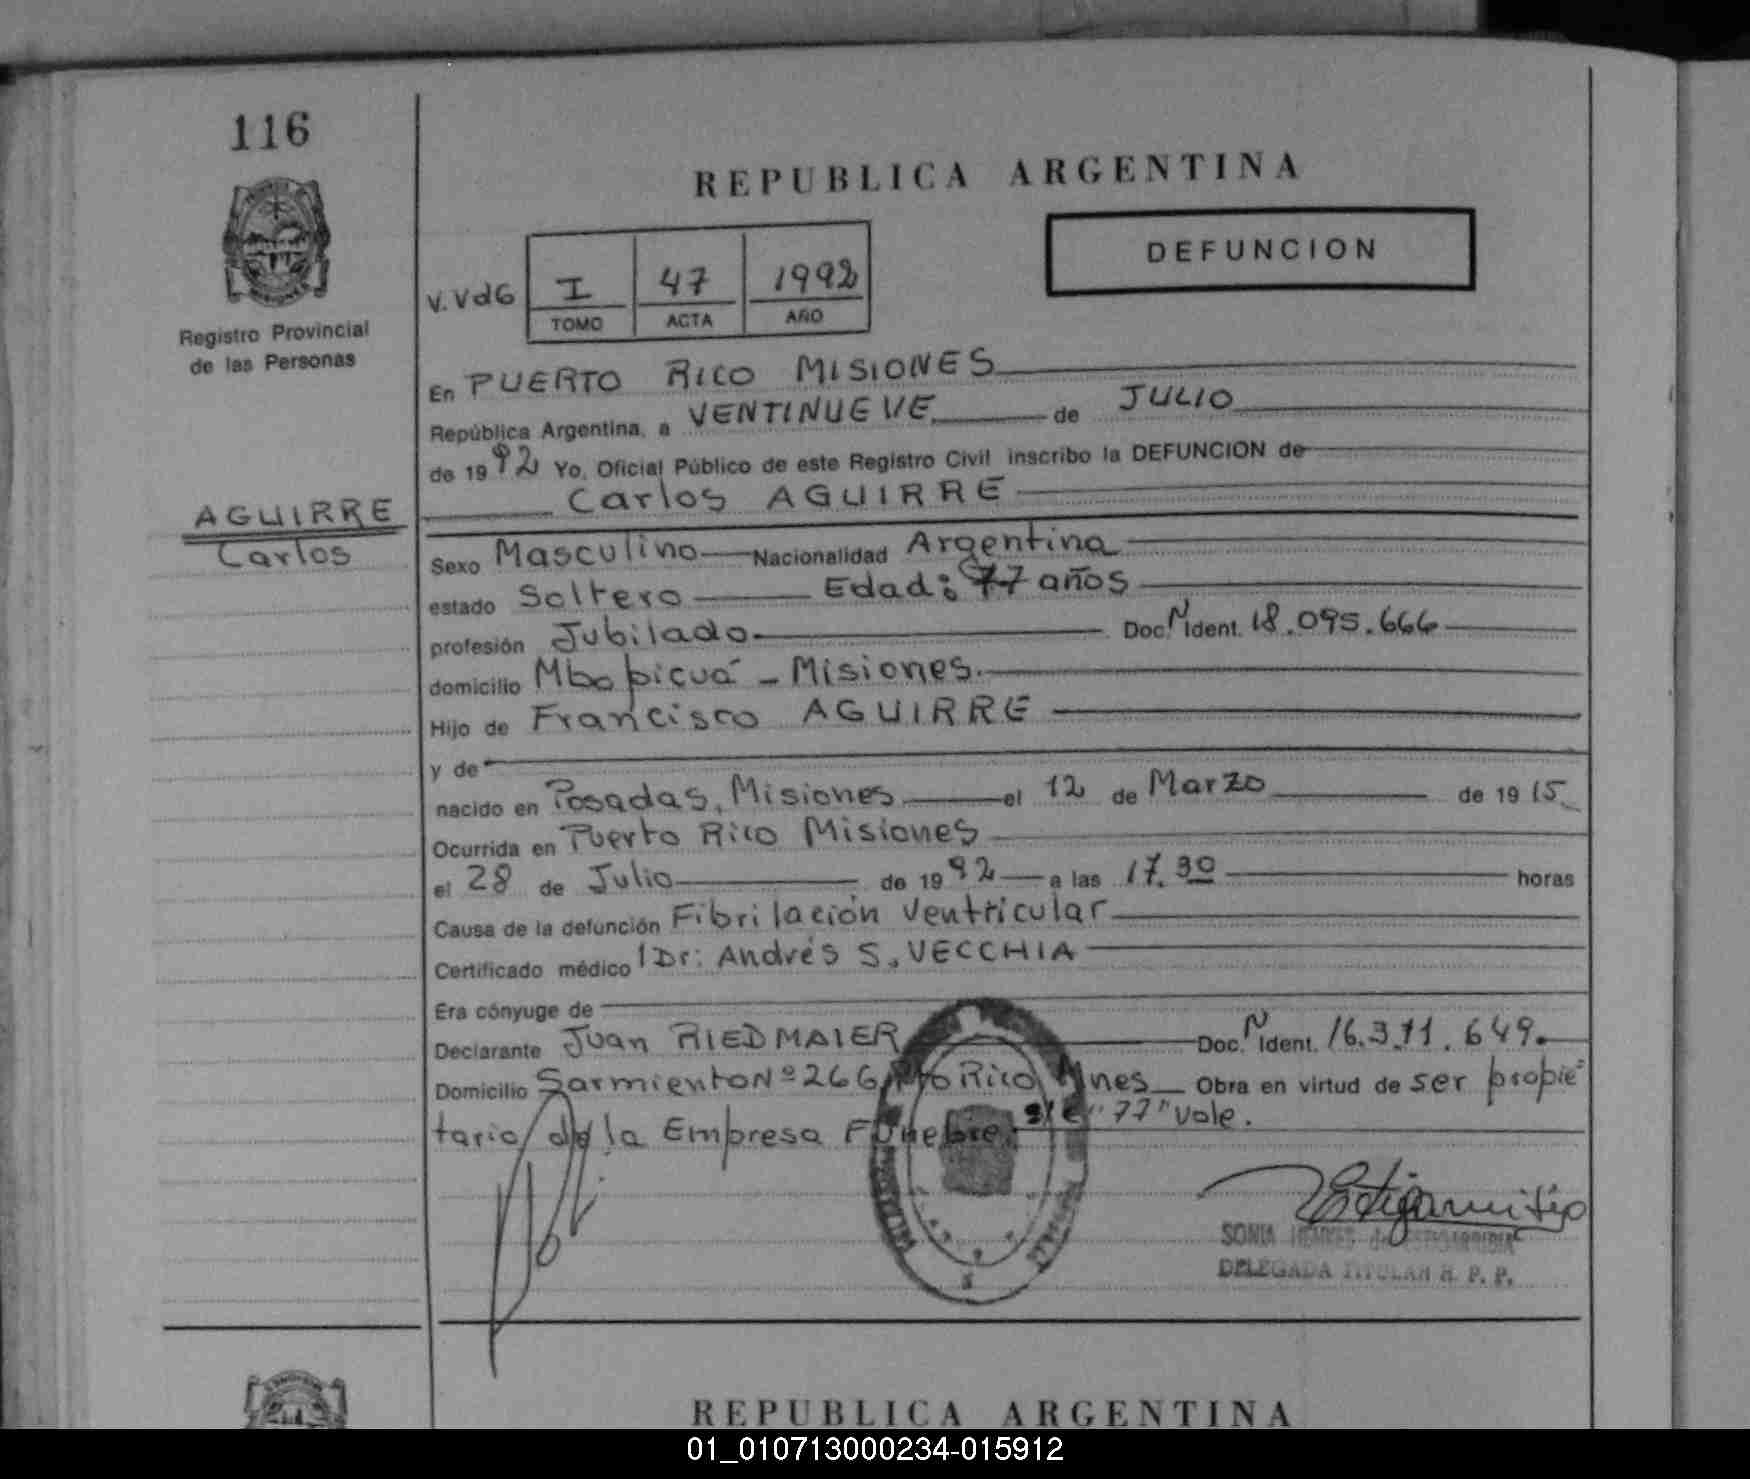 116
REPUBLICA ARGENTINA
DEFUNCION
V.VdG I 47 1992
TOMO ACTA AÑO
Registro Provincial
de las Personas
En PUERTO RICO MISIONES
República Argentina, a VENTINUEVE de JULIO
de 1992 Yo, Oficial Público de este Registro Civil inscribo la DEFUNCION de
Carlos AGUIRRE
AGUIRRE
Carlos
Sexo Masculino Nacionalidad Argentina
estado Soltero Edad: 77 años
profesión Jubilado Doc. N Ident. 18.095.666
domicilio Mbopicuá - Misiones.
Hijo de Francisco AGUIRRE
y de
nacido en Posadas, Misiones el 12 de Marzo de 1915
Ocurrida en Puerto Rico Misiones
el 28 de Julio de 1992 a las 17.30 horas
Causa de la defunción Fibrilación Ventricular
Certificado médico Dr: Andrés S. VECCHIA
Era cónyuge de
Declarante Juan RIEDMAIER Doc. N Ident. 16.311.649.
Domicilio Sarmiento Nº 266 Pto Rico Mnes Obra en virtud de ser propie
tario de la Empresa Fúnebre. "77" Vale.
SONIA de
DELEGADA TITULAR R. P. P.
REPUBLICA ARGENTINA
01_010713000234-015912